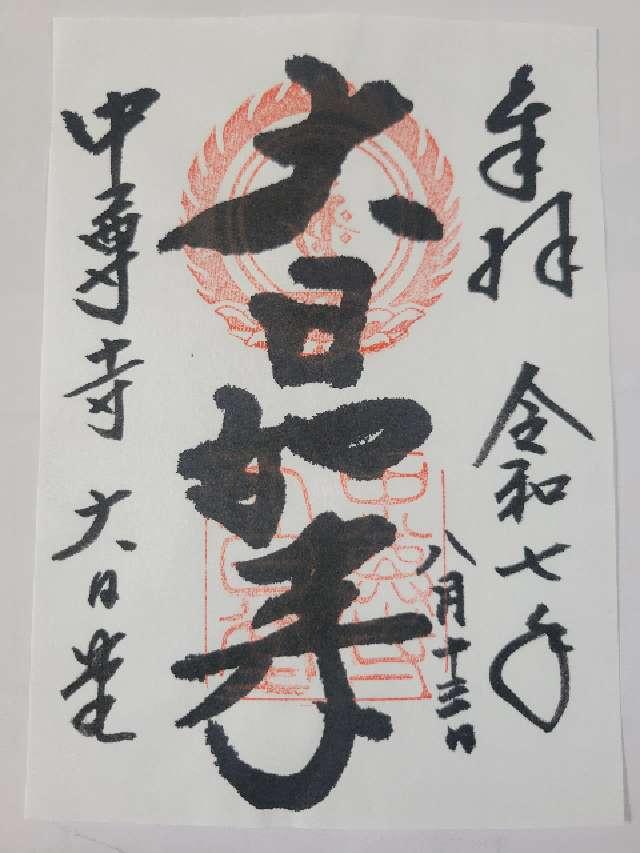 奉拝
令和七年
八月十三日
大日如来
中尊寺 大日堂